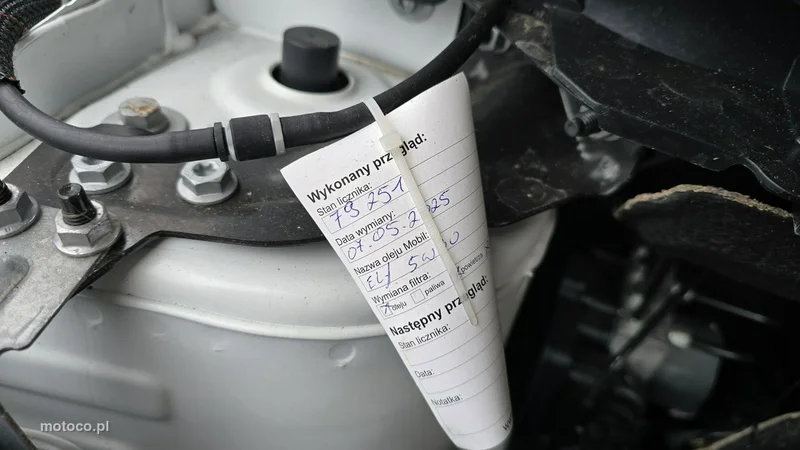 Wykonany przegląd:
Stan licznika:
73 251
Data wymiany:
07.05.2025
Nazwa oleju Mobil:
Elf 5W30
Wymiana filtra:
oleju paliwa powietrza
Następny przegląd:
Stan licznika:
Data:
Notatka:
motoco.pl